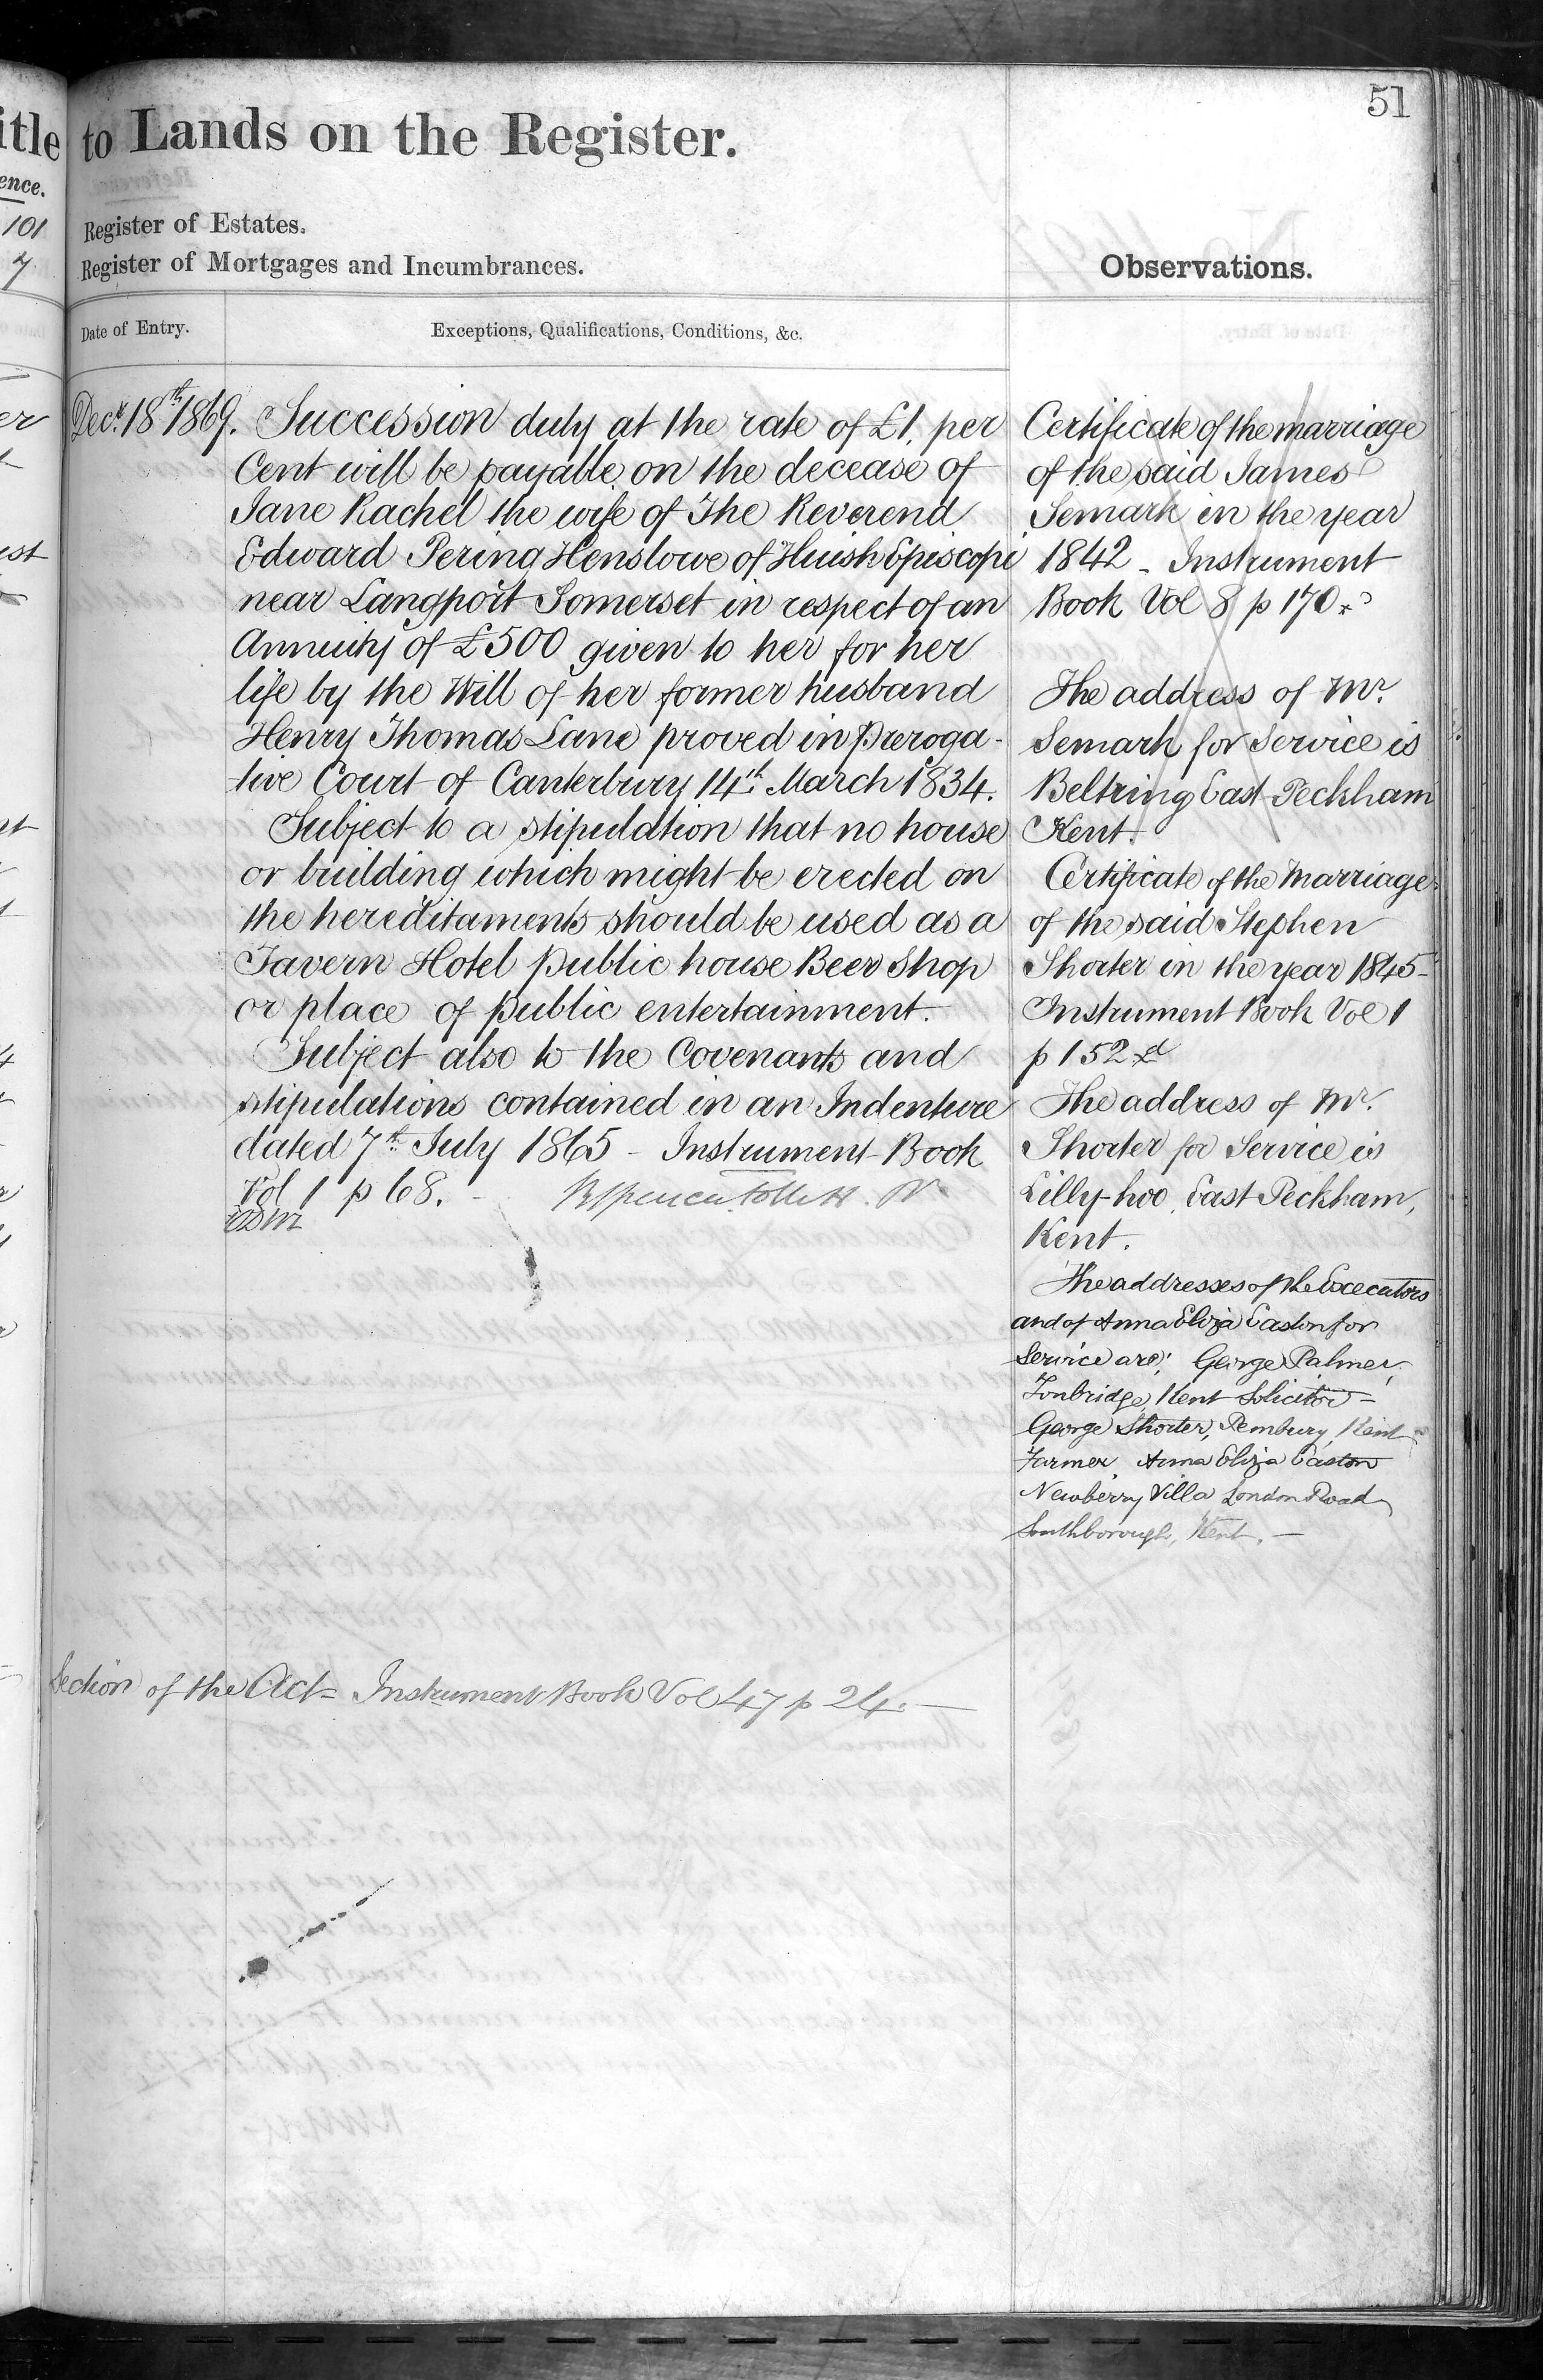 51
to Lands on the Register.
Register of Estates.
Register of Mortgages and Incumbrances.
Observations.
Date of Entry.
Exceptions, Qualifications, Conditions, &c.
Decr. 18th 1869.
Succession duty at the rate of £1. per
Cent will be payable on the decease of
Jane Rachel the wife of The Reverend
Edward Pering Henslowe of Huish Episcopi
near Langport Somerset in respect of an
Annuity of £500 given to her for her
life by the Will of her former husband
Henry Thomas Lane proved in Preroga-
tive Court of Canterbury 14th March 1834.
Subject to a stipulation that no house
or building which might be erected on
the hereditaments should be used as a
Tavern Hotel public house Beer Shop
or place of public entertainment.
Subject also to the Covenants and
stipulations contained in an Indenture
dated 7th July 1865 - Instrument Book
Vol 1 p 68. -
Section of the Act - Instrument Book Vol 47 p 24. —
Certificate of the marriage
of the said James
Semark in the year
1842 - Instrument
Book Vol 8 p 170
The address of Mr.
Semark for Service is
Beltring East Peckham
Kent.
Certificate of the Marriage
of the said Stephen
Shorter in the year 1845 -
Instrument Book Vol 1
p 152
The address of Mr.
Shorter for Service is
Lilly-hoo, East Peckham,
Kent.
The addresses of the Executors
and of Anna Eliza Easton for
Service are; George Palmer,
Tonbridge, Kent Solicitor -
George Shorter, Pembury, Kent
Farmer, Anna Eliza Easton
Newberry Villa London Road
Southborough, Kent. —